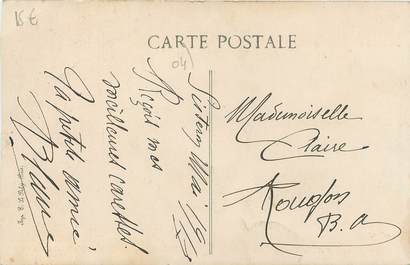 15€
CARTE POSTALE
04
Sisteron Mai
Reçois mes
meilleures caresses.
Ta petite amie
Mademoiselle
Claire
Rougon
B. A